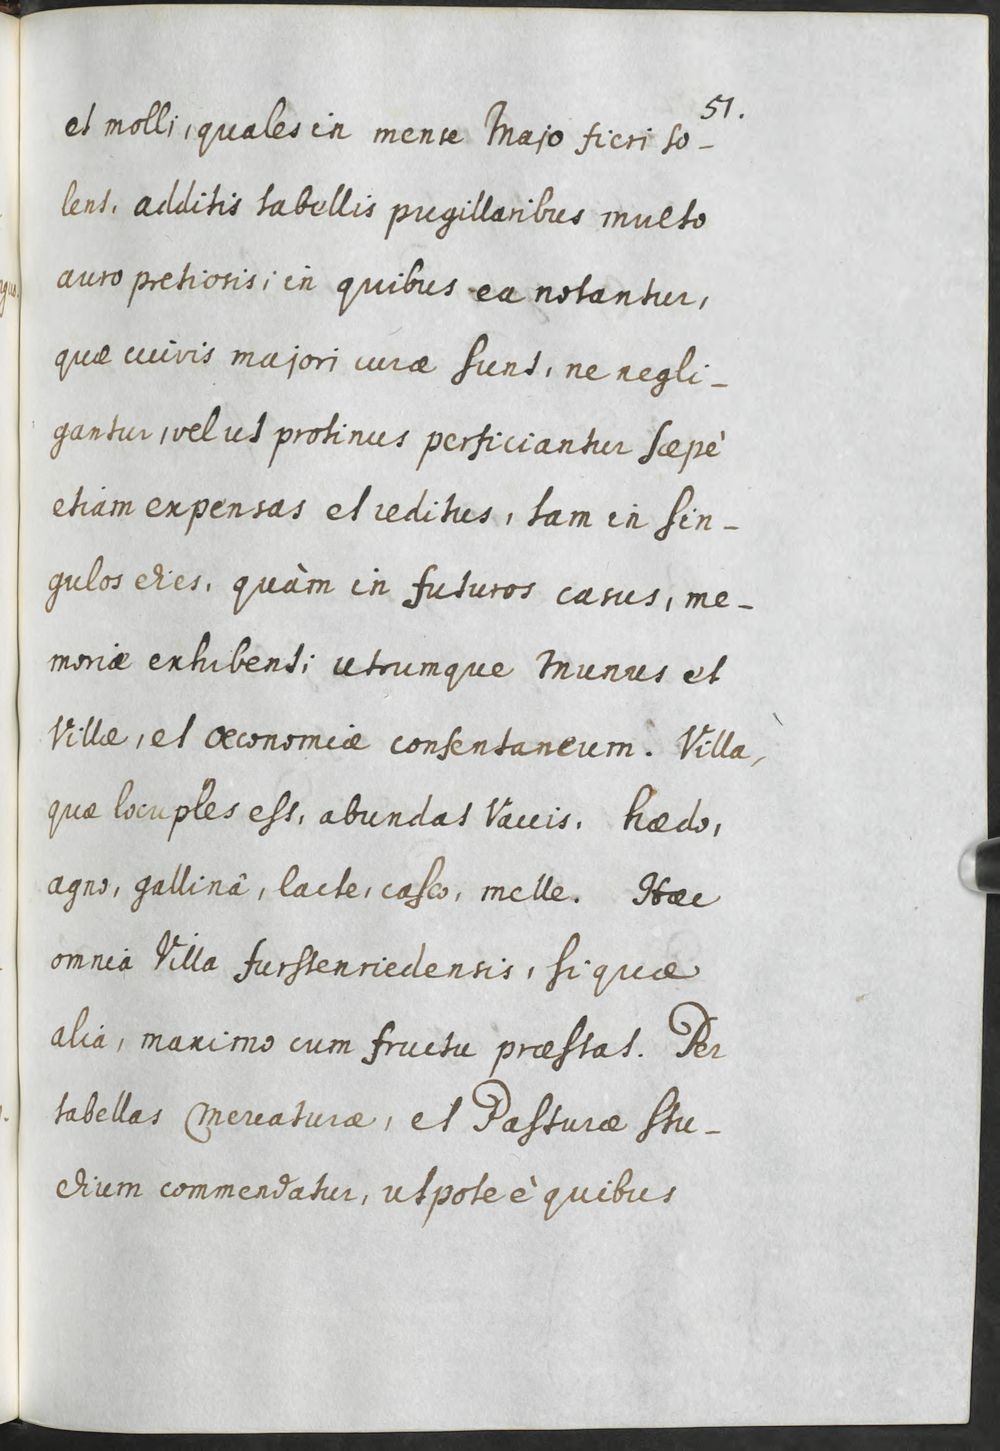 51.
et molli, quales in mense Majo fieri so-
lent, additis tabellis pugillaribus multo
auro pretiosis; in quibus ea notantur,
quæ cuivis majori curæ sunt, ne negli-
gantur, vel ut protinus perficiantur sæpè
etiam expensas et reditus, tam in sin-
gulos dies, quàm in futuros casus, me-
moriæ exhibent; utrumque Munus et
Villæ, et œconomiæ consentaneum. Villa,
quæ locuples est, abundat Vaccis, hædo,
agno, gallinâ, lacte, caseo, melle. Hæc
omnia Villa furstenriedensis, si quæ
alia, maximo cum fructu præstat. Per
tabellas Mercaturæ, et Pasturæ stu-
dium commendatur, utpote è quibus